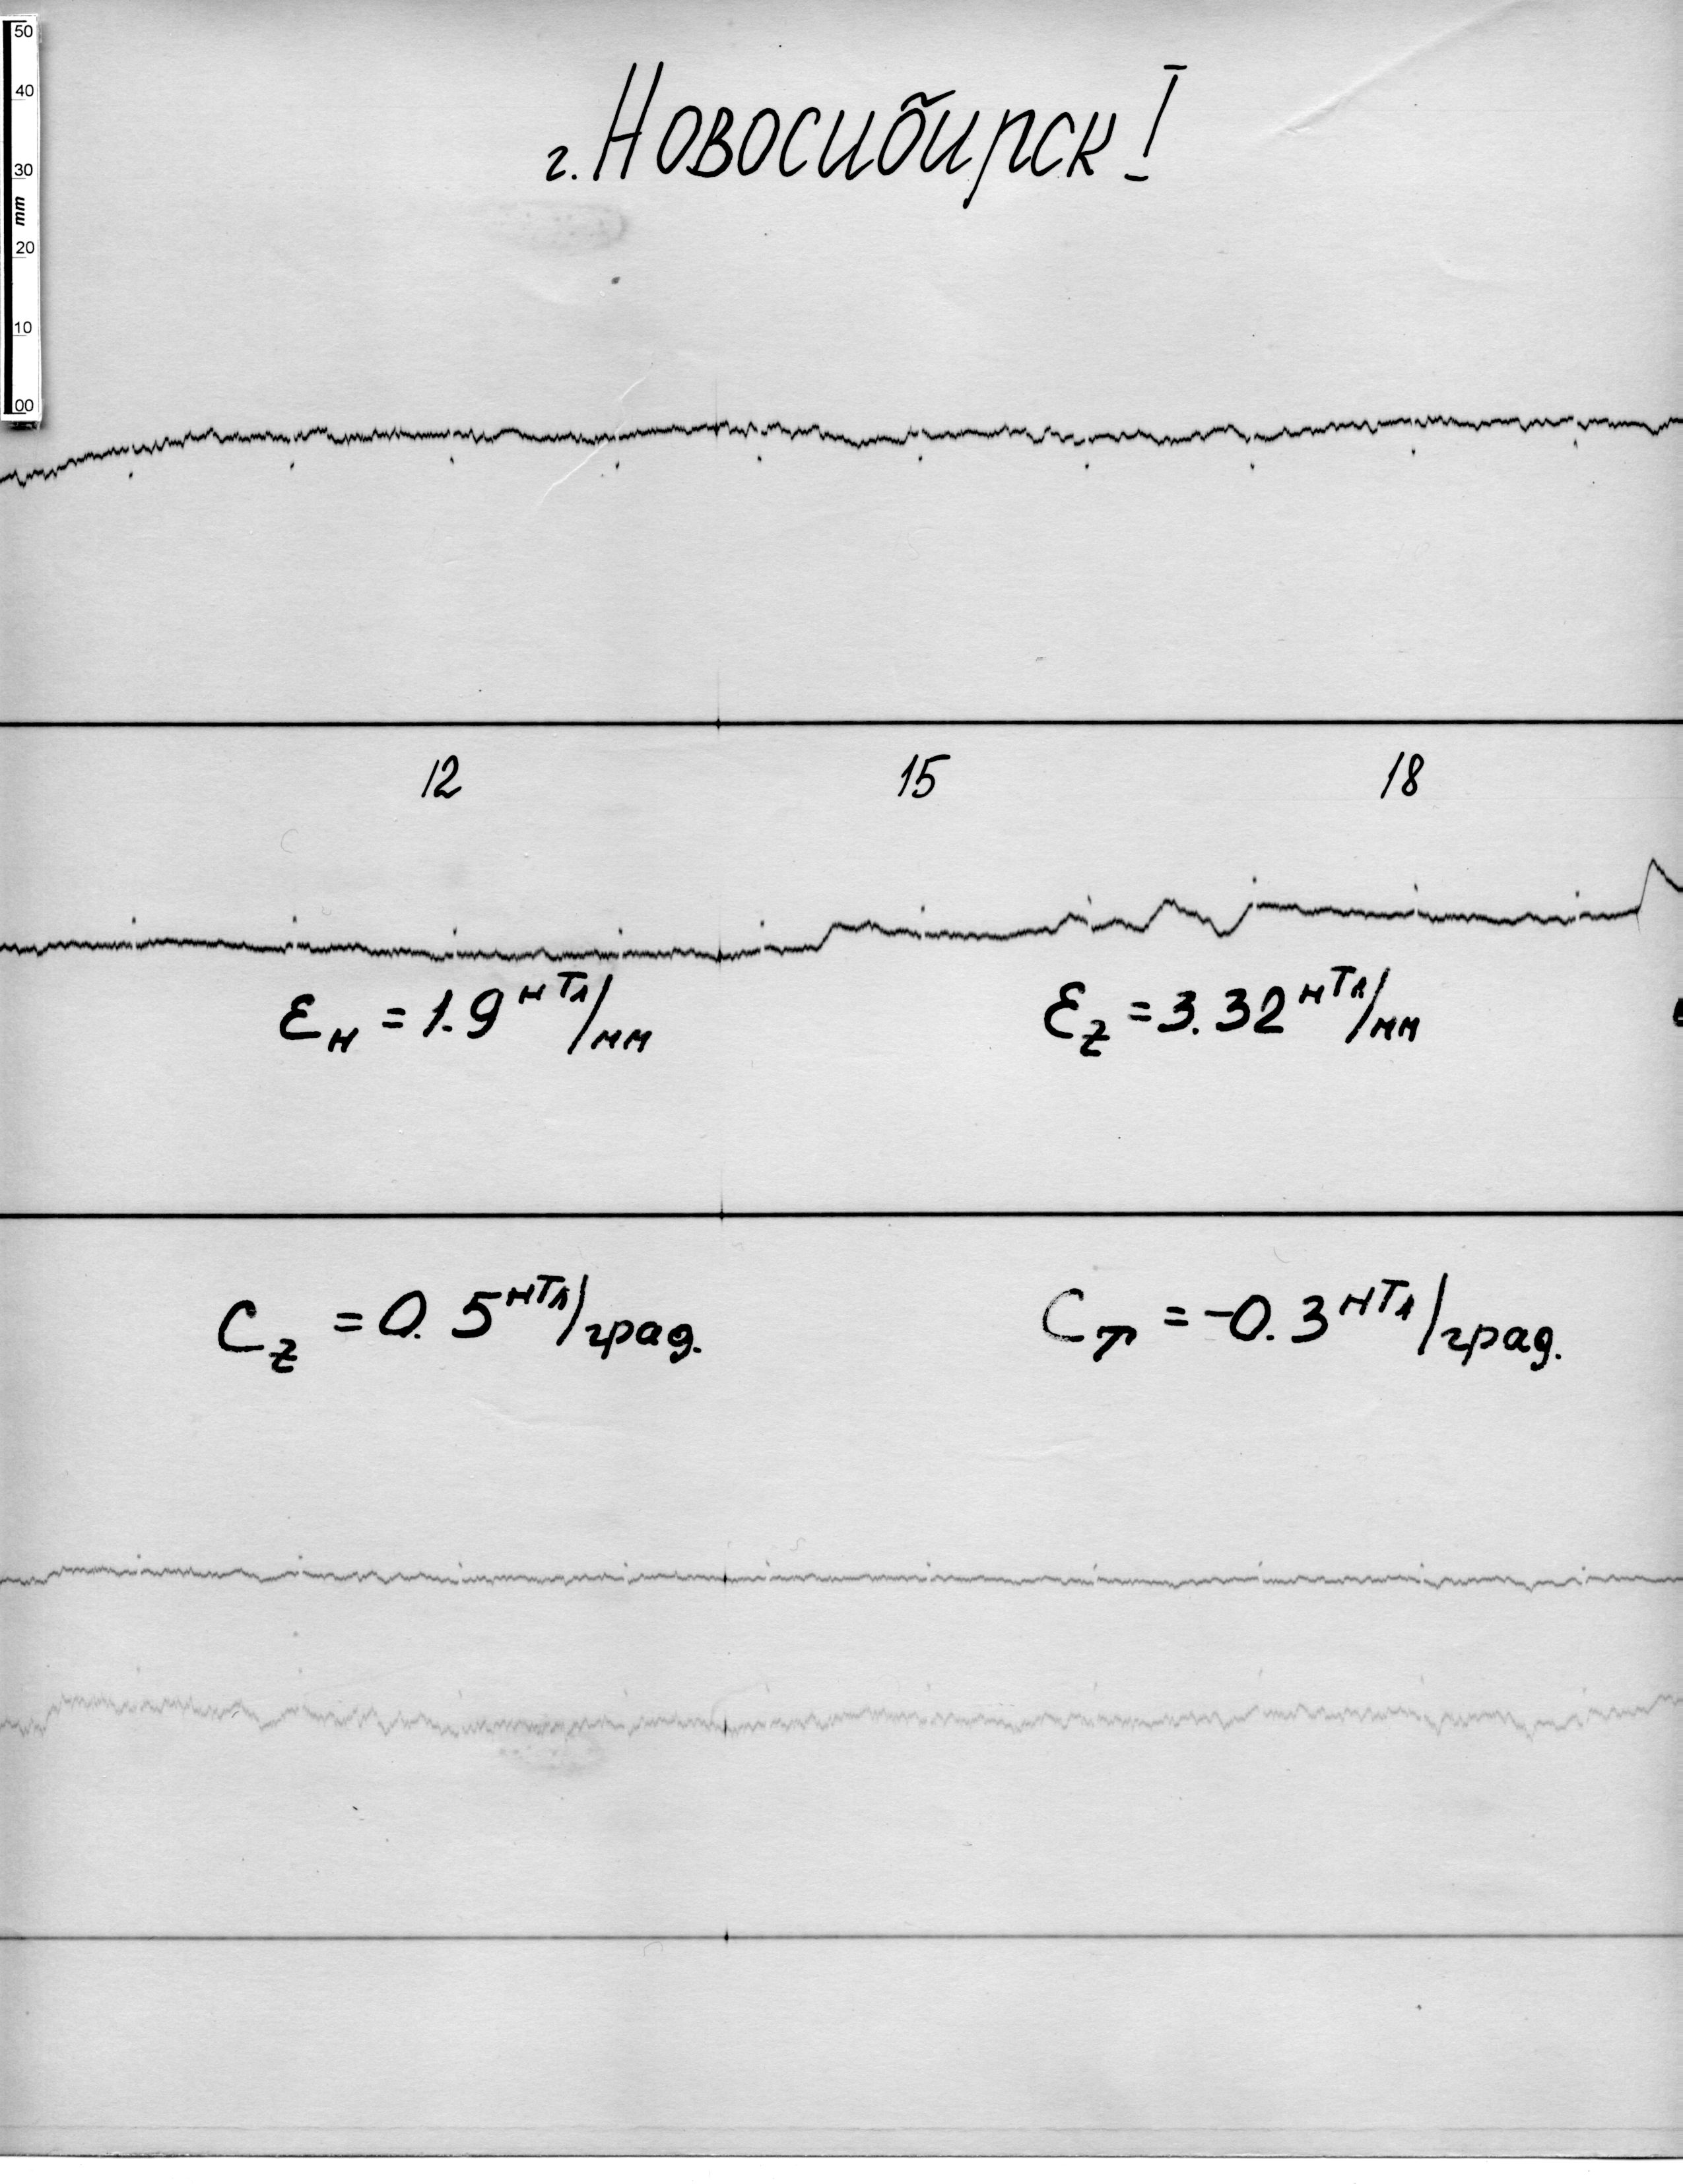 50
40
30
mm
20
10
00
г. Новосибирск I
12 15 18
εн = 1.9 нТл/мм εz = 3.32 нТл/мм
Cz = 0.5 нТл/град. CT = -0.3 нТл/град.